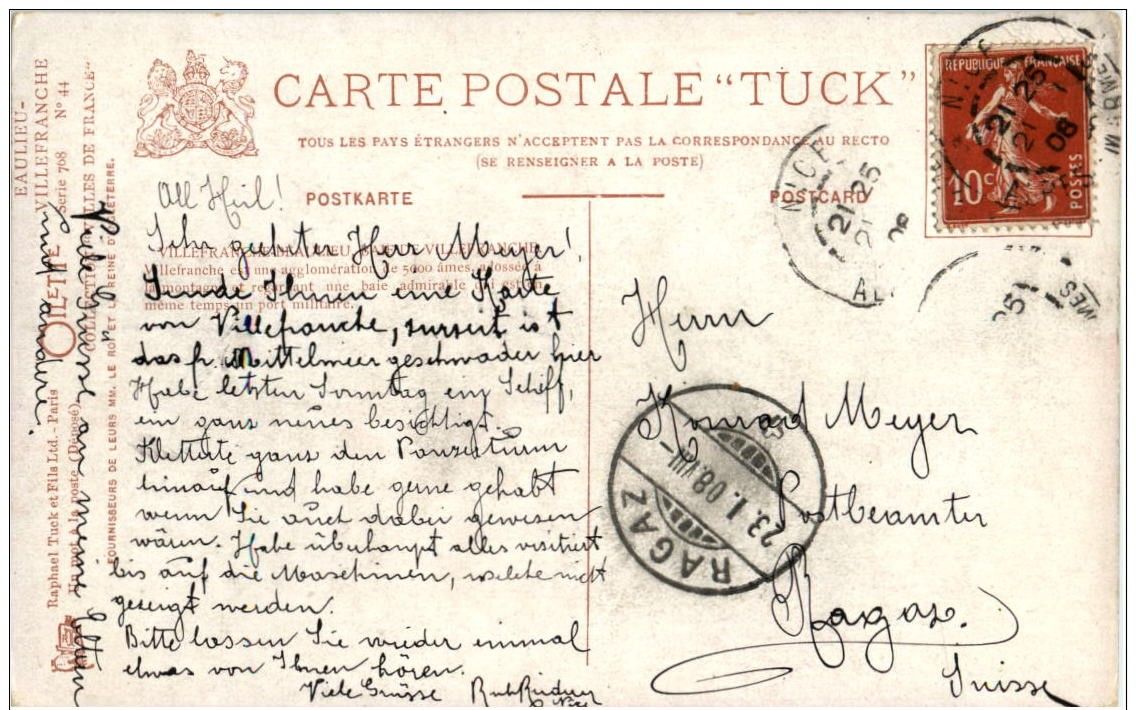 CARTE POSTALE “TUCK”
TOUS LES PAYS ÉTRANGERS N'ACCEPTENT PAS LA CORRESPONDANCE AU RECTO
(SE RENSEIGNER A LA POSTE)
POSTKARTE
POSTCARD
RÉPUBLIQUE FRANÇAISE
10c
POSTES
NICE
21 25
21
08
NICE
21 25
21
EAULIEU-
VILLEFRANCHE
Série 708 No 44
COLLECTION VILLES DE FRANCE"
OILETTE
Raphael Tuck et Fils Ltd. - Paris
(Déposé)
FOURNISSEURS DE LEURS MM. LE ROI ET LA REINE D'ANGLETERRE.
VILLEFRANCHE-BEAULIEU. BAIE DE VILLEFRANCHE
Villefranche est une agglomération de 5000 âmes, adossée à
la montagne et regardant une baie admirable qui est en
même temps un port militaire.
All Heil!
Sehr geehrter Herr Meyer!
Sende Ihnen eine Karte
von Villefranche, surseit ist
das fr. Mittelmeergeschwader hier
Habe letzten Sonntag ein Schiff,
ein ganz neues besichtigt.
Kletterte ganz den Panzerturm
hinauf und habe gerne gehabt
wenn Sie auch dabei gewesen
wären. Habe überhaupt alles visitiert
bis auf die Maschinen, welche nicht
gezeigt werden.
Bitte lassen Sie wieder einmal
etwas von Ihnen hören.
Viele Grüsse
Viele Grüsse an meine Eltern
und andere.
Herrn
Konrad Meyer
Postbeamter
Ragaz.
Suisse
RAGAZ
23.I.08.VIII-